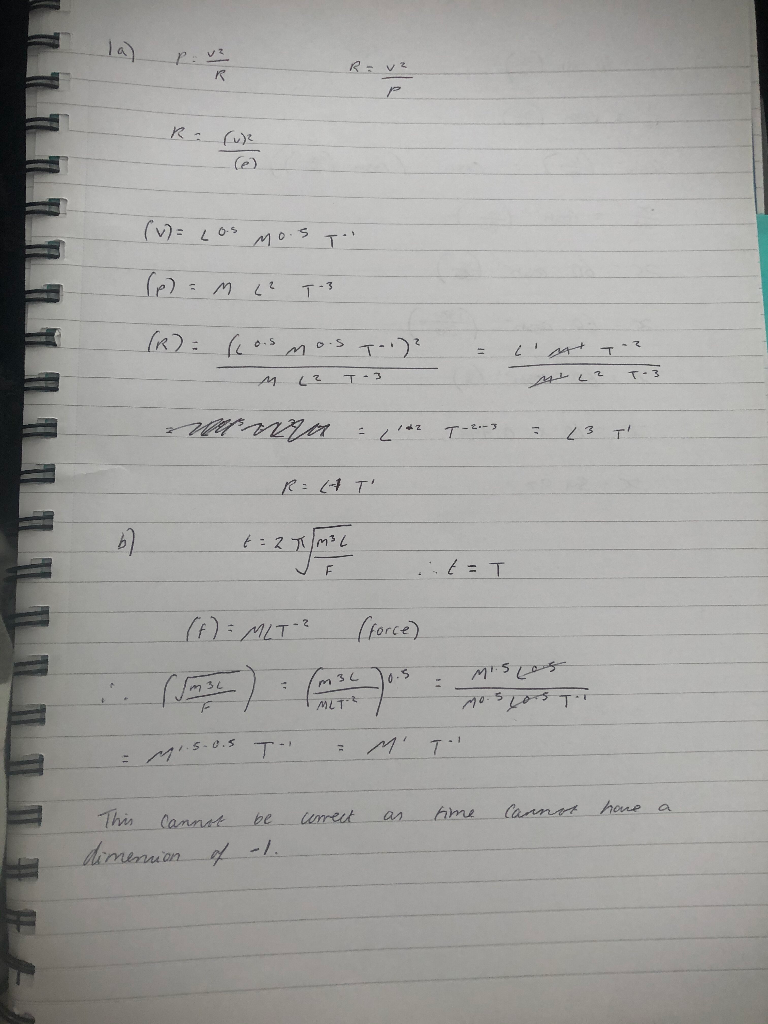 1a) P = V²/R R = V²/P
R = (V)²/(P)
(V) = L^0.5 M^0.5 T^-1
(P) = M L² T^-3
(R) = (L^0.5 M^0.5 T^-1)²/(M L² T^-3) = L^1 M^1 T^-2/(M^1 L² T^-3)
= = L^1+2 T^-2--3 = L^3 T^1
R = L^-1 T^1
b) t = 2π√(m³L/F) ∴ t = T
(f) = MLT^-2 (force)
∴ (√(m³L/F)) = (m³L/MLT^-2)^0.5 = M^1.5 L^0.5/(M^0.5 L^0.5 T^-1)
= M^1.5-0.5 T^-1 = M^1 T^-1
This cannot be correct as time cannot have a
dimension of -1.